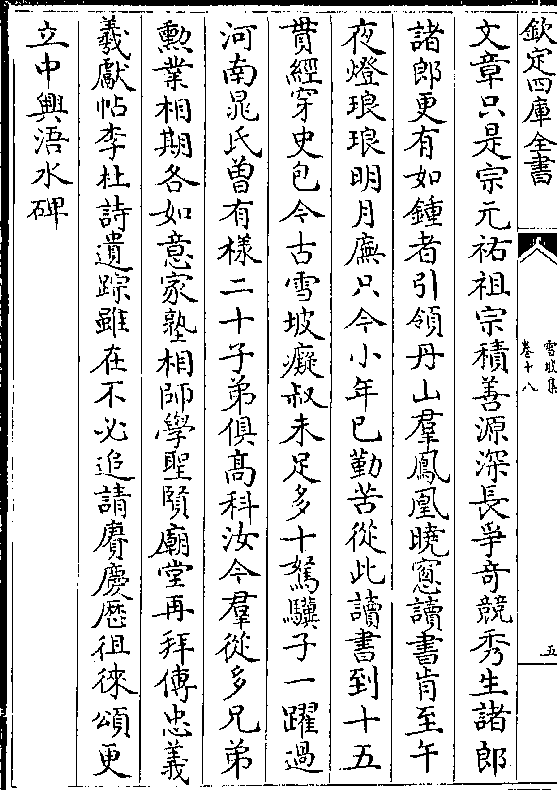 欽定四庫全書
雪坡集
卷十八
五
文章只是宗元祐祖宗積善源深長爭奇競秀生諸郎
諸郎更有如鍾者引領丹山羣鳳凰曉窻讀書肯至午
夜燈琅琅明月廡只今小年已勤苦從此讀書到十五
貫經穿史包今古雪坡癡叔未足多十駑驥子一躍過
河南晁氏曽有樣二十子弟俱髙科汝今羣從多兄弟
勲業相期各如意家塾相師學聖賢廟堂再拜傳忠義
羲獻帖李杜詩遺踪雖在不必追請賡慶厯徂徠頌更
立中興浯水碑